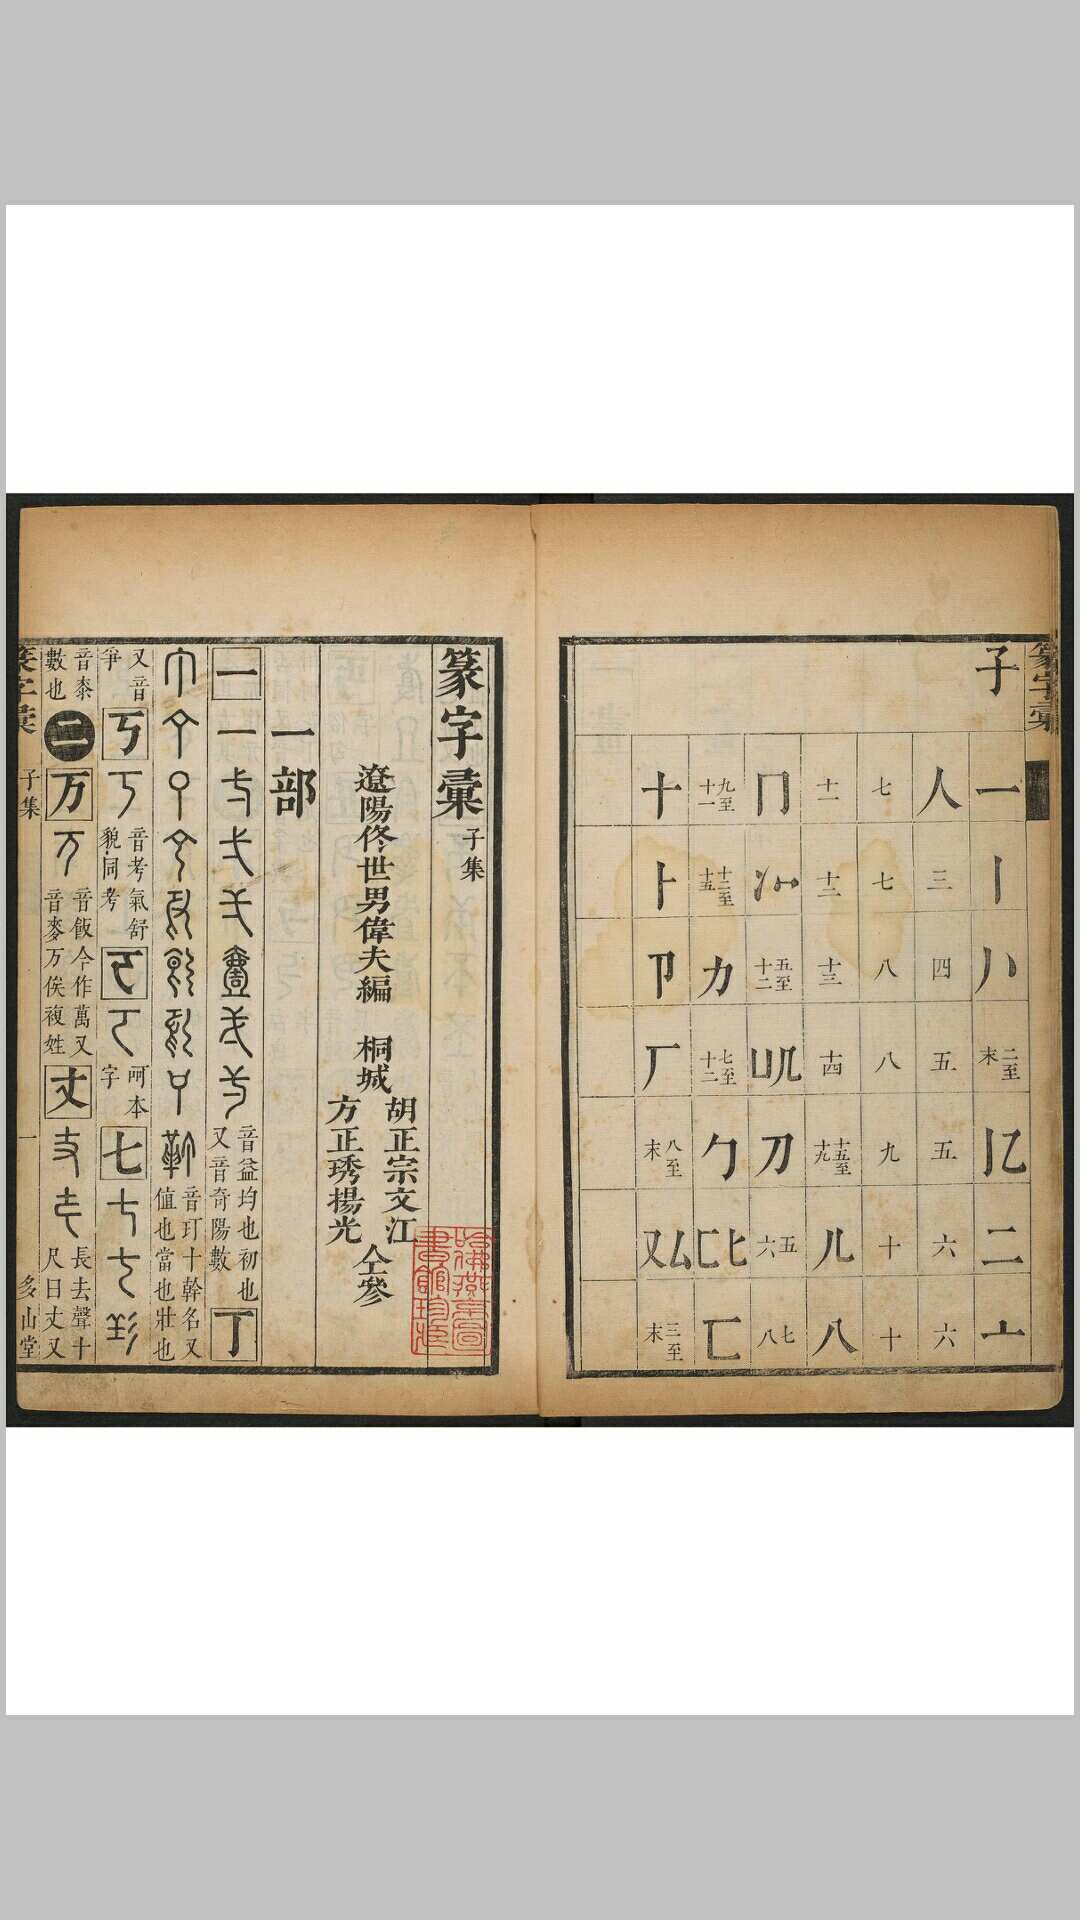 篆字彙
子
一
丨
八
二至末
亿
二
亠
人
三
四
五
五
六
六
七
七
八
八
九
十
十
十一
十二
十三
十四
十五至十九
儿
八
冂
五至十二
几凵
刀
五六
七八
九至十一
十二至十五
力
七至十二
勹
匕匚
匸
十
卜
卩
厂
八至末
厶又
三至末
篆字彙 子集
遼陽佟世男偉夫編 桐城 胡正宗文江 方正琇揚光 仝參
一部
一 音益均也初也又音奇陽數 丁
音玎十幹名又值也當也壯也
又音爭 丂 音考氣舒貌同考 𠀀 呵本字 七
音桼數也 二 万 音飯今作萬又音麥万俟複姓 丈 長去聲十尺曰丈又
篆字彙 子集 一 多山堂
哈佛燕京圖書館珍藏